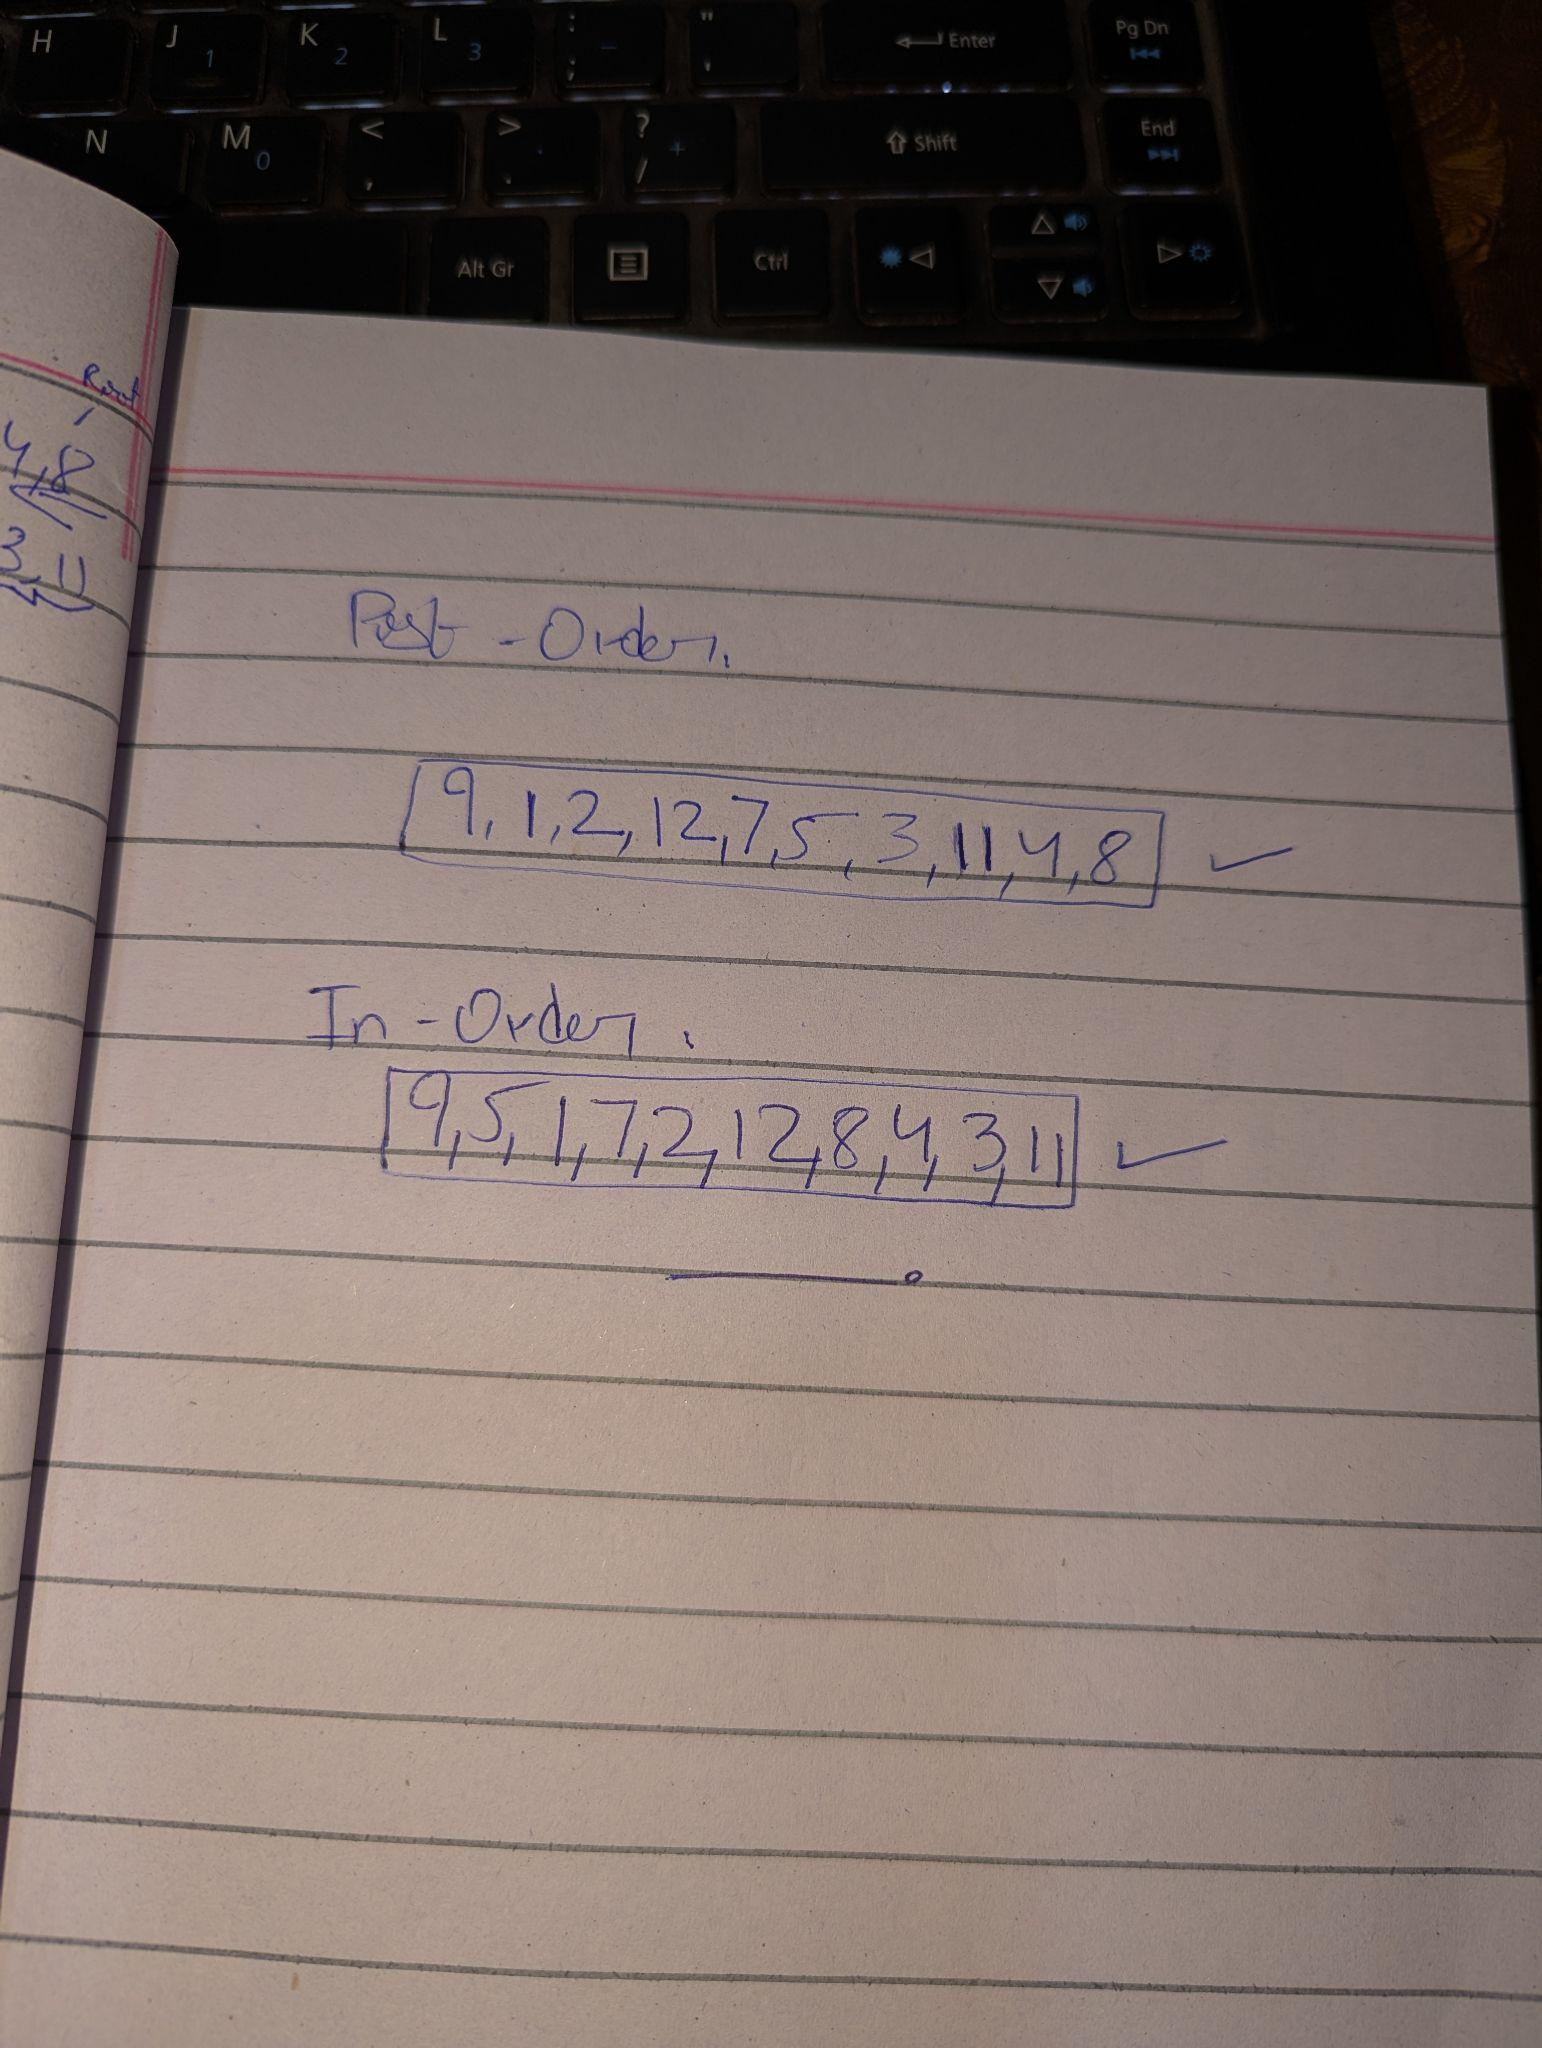 H J 1 K 2 L 3 : ; - " ' Enter Pg Dn
N M 0 < , > . . ? / + Shift End
Alt Gr Ctrl
Root
4,8
3,11
Post - Order.
9,1,2,12,7,5,3,11,4,8
In - Order.
9,5,1,7,2,12,8,4,3,11